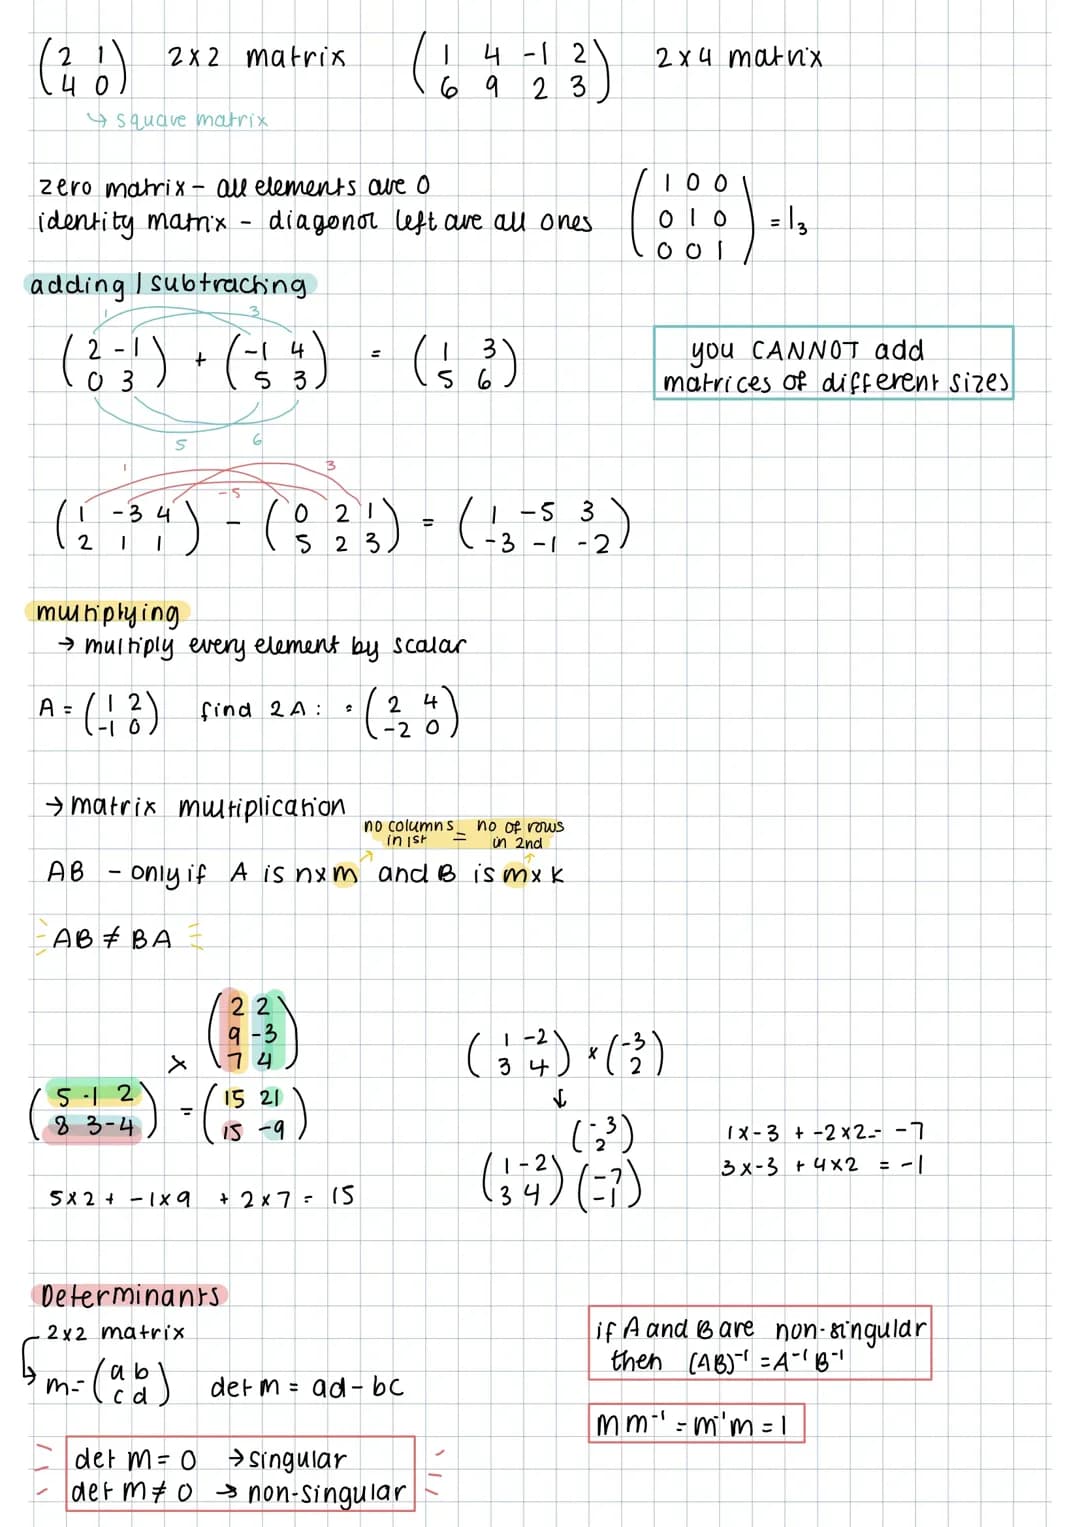 (2 1  2x2 matrix  (1 4 -1 2  2x4 matrix
4 0)  6 9 2 3)
↳ square matrix
zero matrix - all elements are 0
identity matrix - diagonal left are all ones
(1 0 0
0 1 0
0 0 1) = I₃
adding / subtracting
1 3
(2 -1  + (-1 4  = (1 3
0 3)  5 3)  5 6)
5 6
you CANNOT add
matrices of different sizes
1 -5 3
(1 -3 4  - (0 2 1  = (1 -5 3
2 1 1)  5 2 3)  -3 -1 -2)
multiplying
→ multiply every element by scalar
A = (1 2  find 2A: = (2 4
-1 0)  -2 0)
→ matrix multiplication
no columns = no of rows
in 1st  in 2nd
AB - only if A is nxm and B is mxk
AB ≠ BA
(2 2
9 -3
x 7 4)
(5 -1 2  = (15 21
8 3 -4)  15 -9)
5x2 + -1x9 + 2x7 = 15
(1 -2  x (-3
3 4)  2)
↓
(-3
2)
(1 -2  (-7
3 4)  -1)
1x-3 + -2x2 = -7
3x-3 + 4x2 = -1
Determinants
2x2 matrix
↳ m = (a b  det m = ad - bc
c d)
det m = 0 → singular
det m ≠ 0 → non-singular
if A and B are non-singular
then (AB)⁻¹ = A⁻¹B⁻¹
mm⁻¹ = m⁻¹m = I